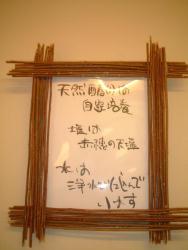 天然酵母の
自家培養
塩は
赤穂の天塩
水は
浄水
います